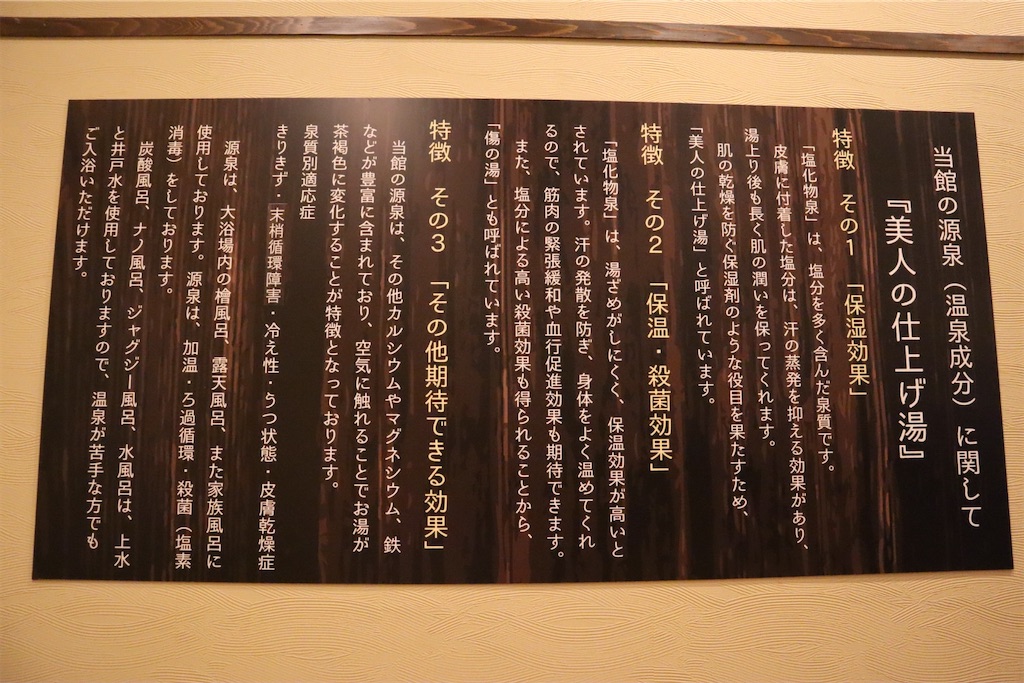 当館の源泉（温泉成分）に関して
『美人の仕上げ湯』
特徴　その1　「保湿効果」
「塩化物泉」は、塩分を多く含んだ泉質です。
皮膚に付着した塩分は、汗の蒸発を抑える効果があり、
湯上り後も長く肌の潤いを保ってくれます。
肌の乾燥を防ぐ保湿剤のような役目を果たすため、
「美人の仕上げ湯」と呼ばれています。
特徴　その2　「保温・殺菌効果」
「塩化物泉」は、湯ざめがしにくく、保温効果が高いと
されています。汗の発散を防ぎ、身体をよく温めてくれ
るので、筋肉の緊張緩和や血行促進効果も期待できます。
また、塩分による高い殺菌効果も得られることから、
「傷の湯」とも呼ばれています。
特徴　その3　「その他期待できる効果」
当館の源泉は、その他カルシウムやマグネシウム、鉄
などが豊富に含まれており、空気に触れることでお湯が
茶褐色に変化することが特徴となっております。
泉質別適応症
きりきず・末梢循環障害・冷え性・うつ状態・皮膚乾燥症
源泉は、大浴場内の檜風呂、露天風呂、また家族風呂に
使用しております。源泉は、加温・ろ過循環・殺菌（塩素
消毒）をしております。
炭酸風呂、ナノ風呂、ジャグジー風呂、水風呂は、上水
と井戸水を使用しておりますので、温泉が苦手な方でも
ご入浴いただけます。